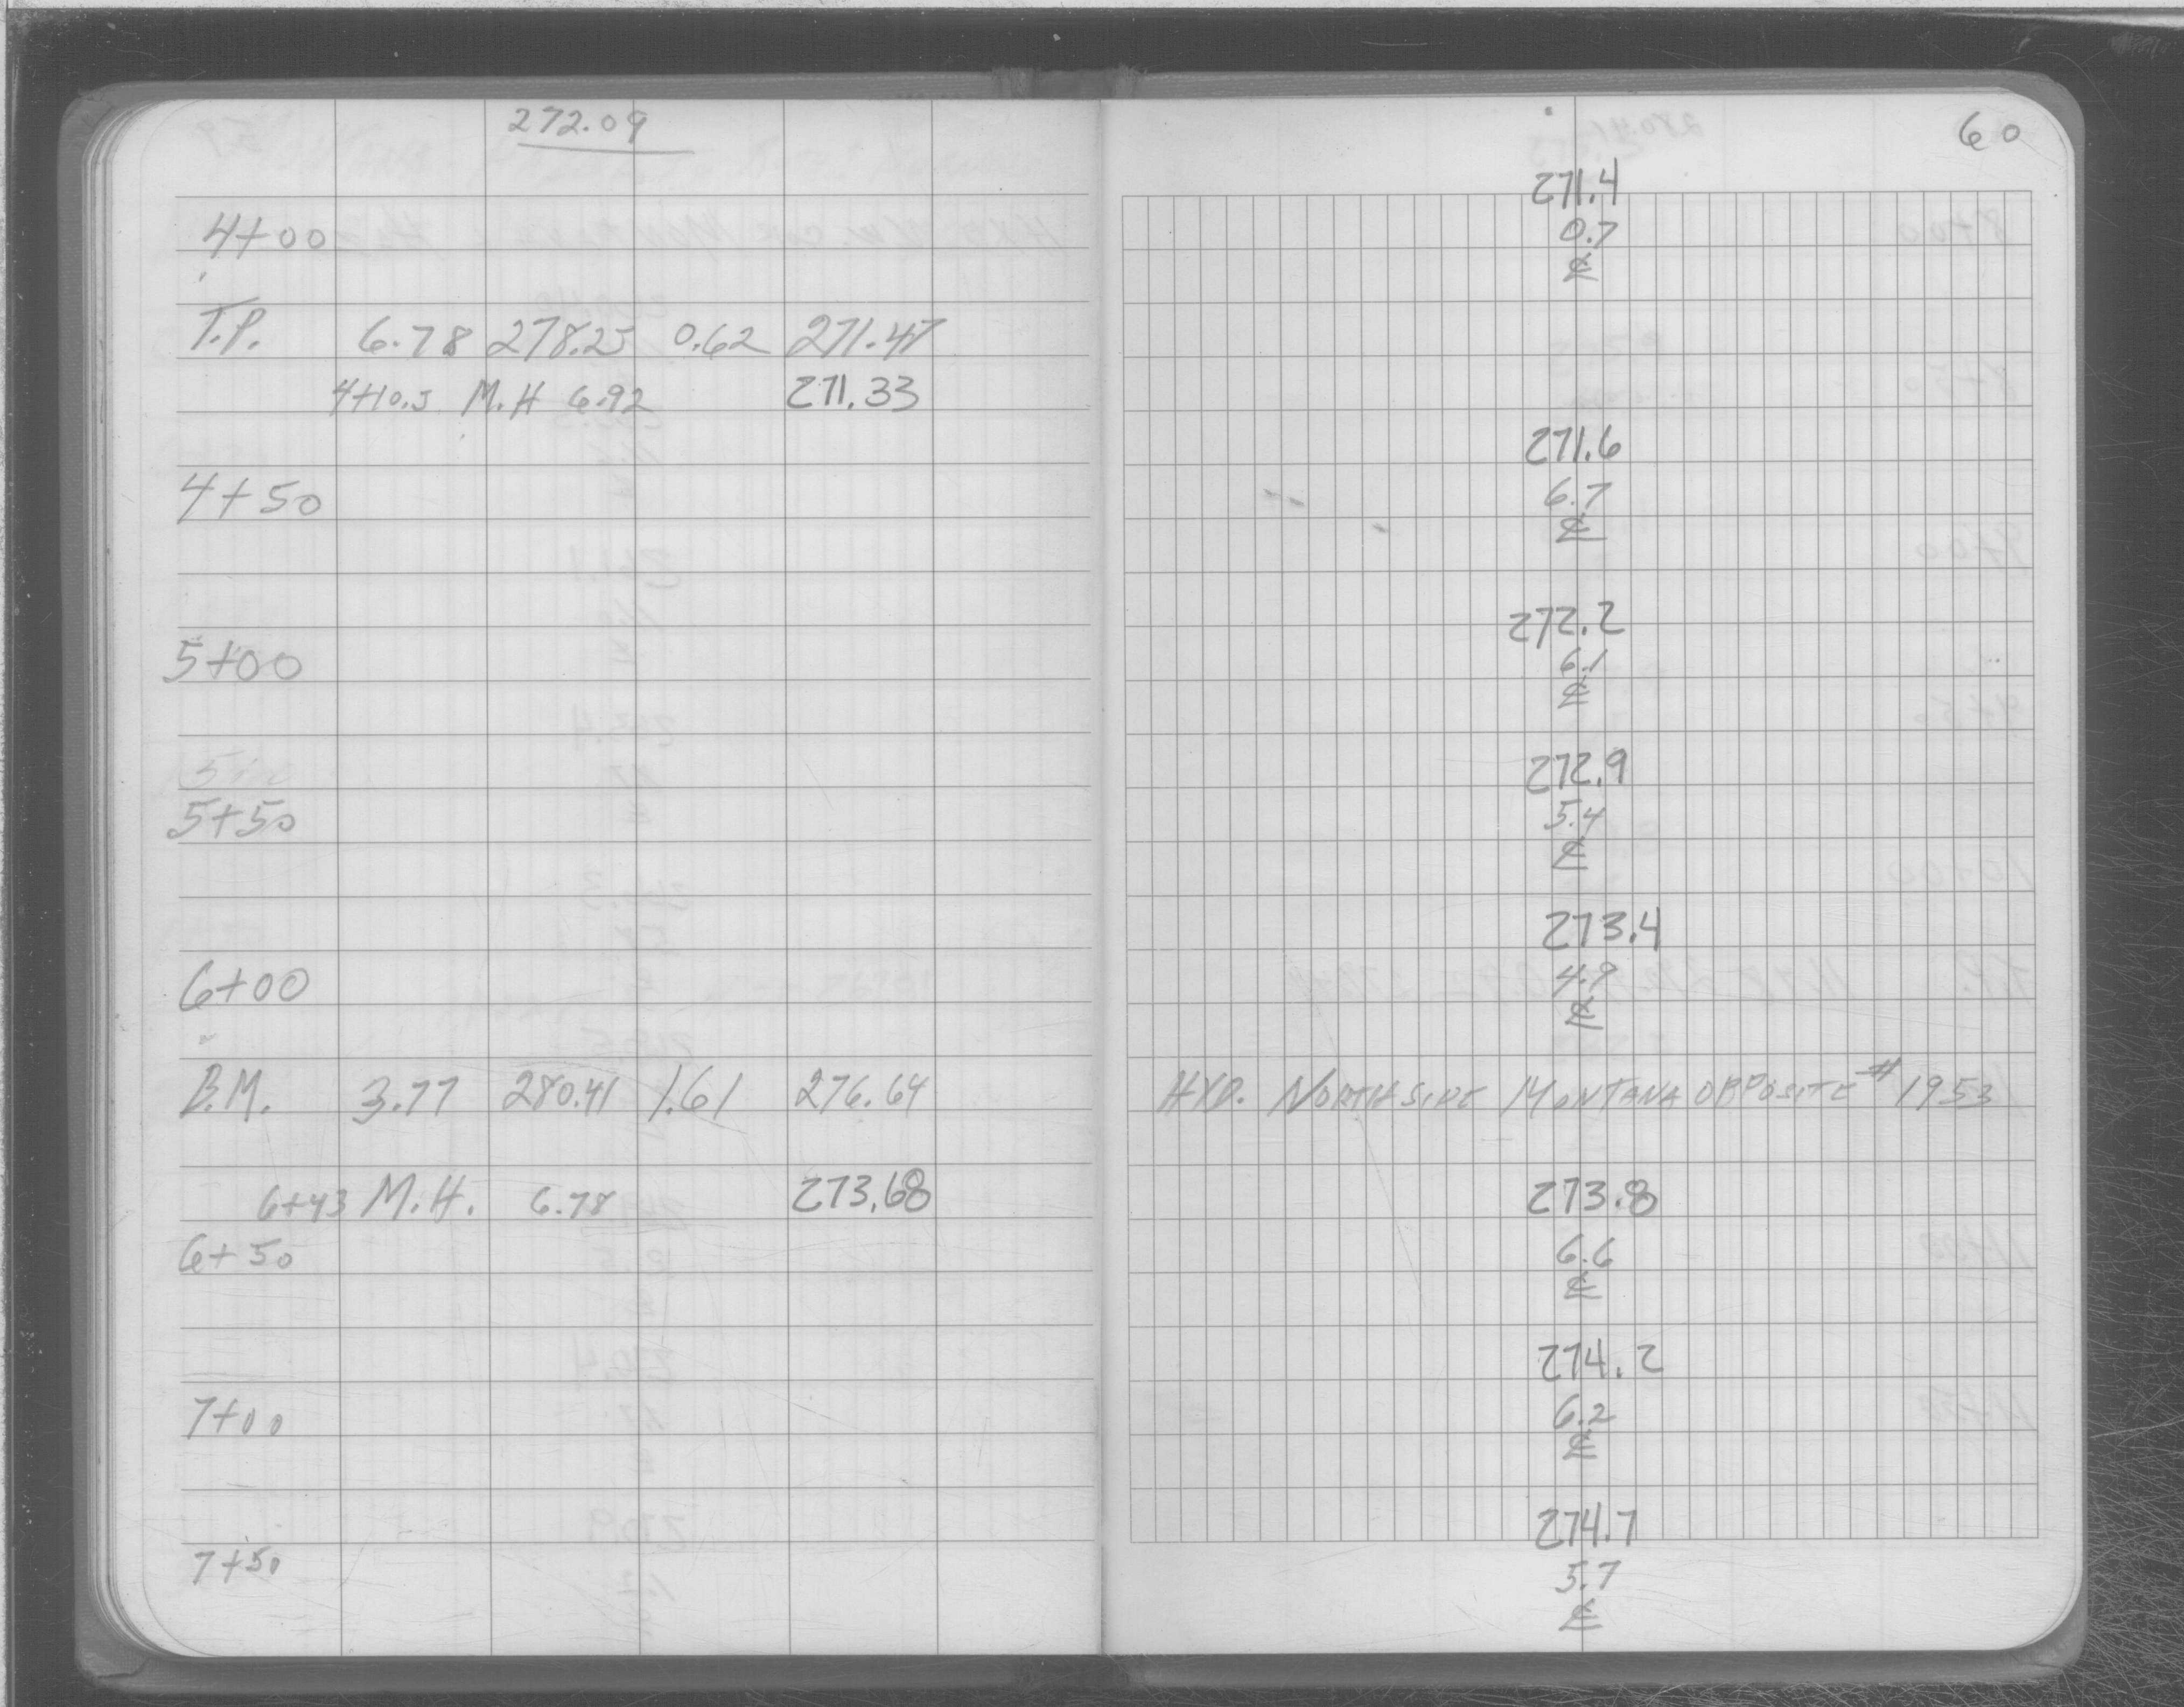 272.09
60
271.4
4+00 0.7
℄
T.P. 6.78 278.25 0.62 271.47
4+10.5 M.H 6.92 271.33
271.6
4+50 6.7
℄
272.2
5+00 6.1
℄
272.9
5+50 5.4
℄
273.4
6+00 4.9
℄
B.M. 3.77 280.41 1.61 276.64 HYD. NORTH SIDE MONTANA OPPOSITE # 1953
6+43 M.H. 6.78 273.68 273.8
6+50 6.6
℄
274.2
7+00 6.2
℄
274.7
7+50 5.7
℄